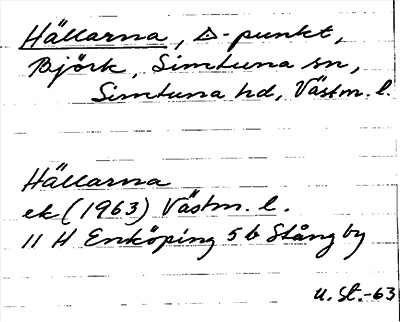 Hällarna, △-punkt,
Björk, Simtuna sn,
Simtuna hd, Västm. l.
Hällarna
ek (1963) Västm. l.
11 H Enköping 5 b Stångby
U. St.-63